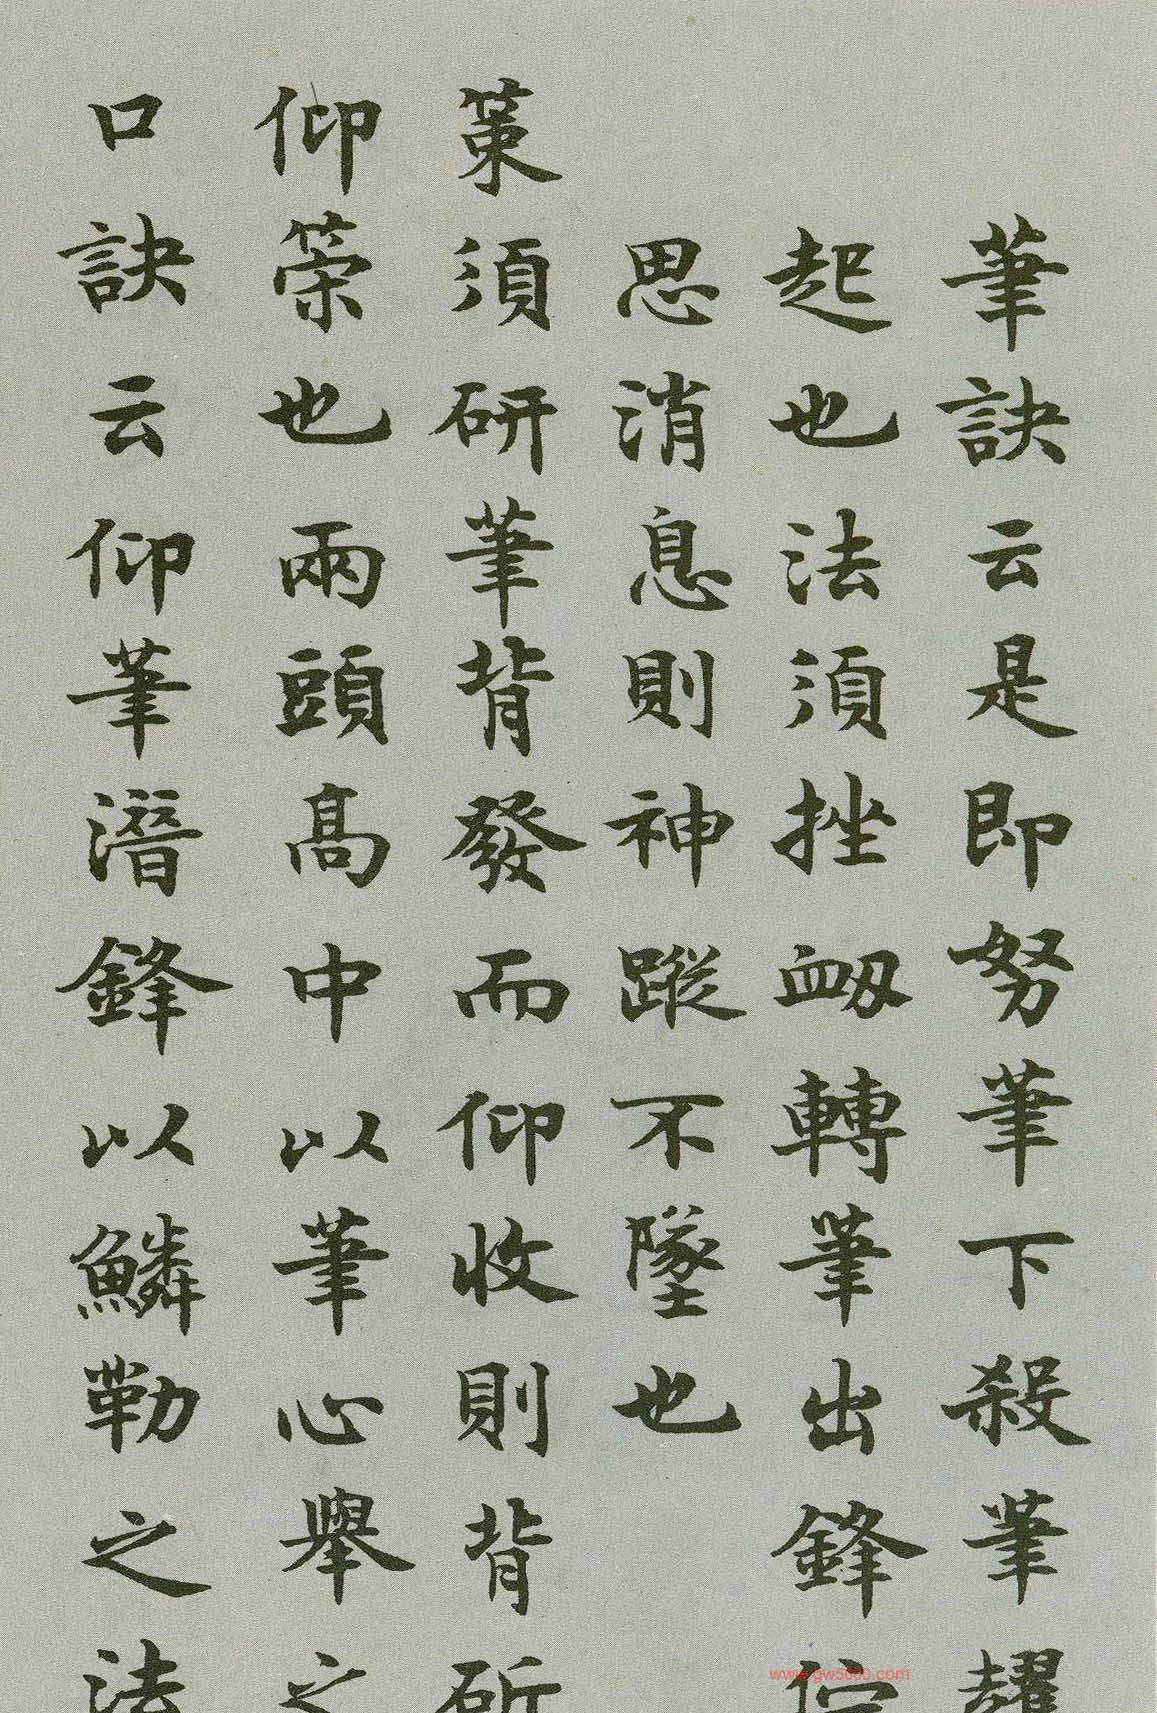 筆訣云是即努筆下殺筆趯
起也法須挫衂轉筆出鋒佇
思消息則神蹤不墜也
策須斫筆背發而仰收則背斫
仰策也兩頭高中以筆心舉之
口訣云仰筆潛鋒以鱗勒之法
www.gw5000.com